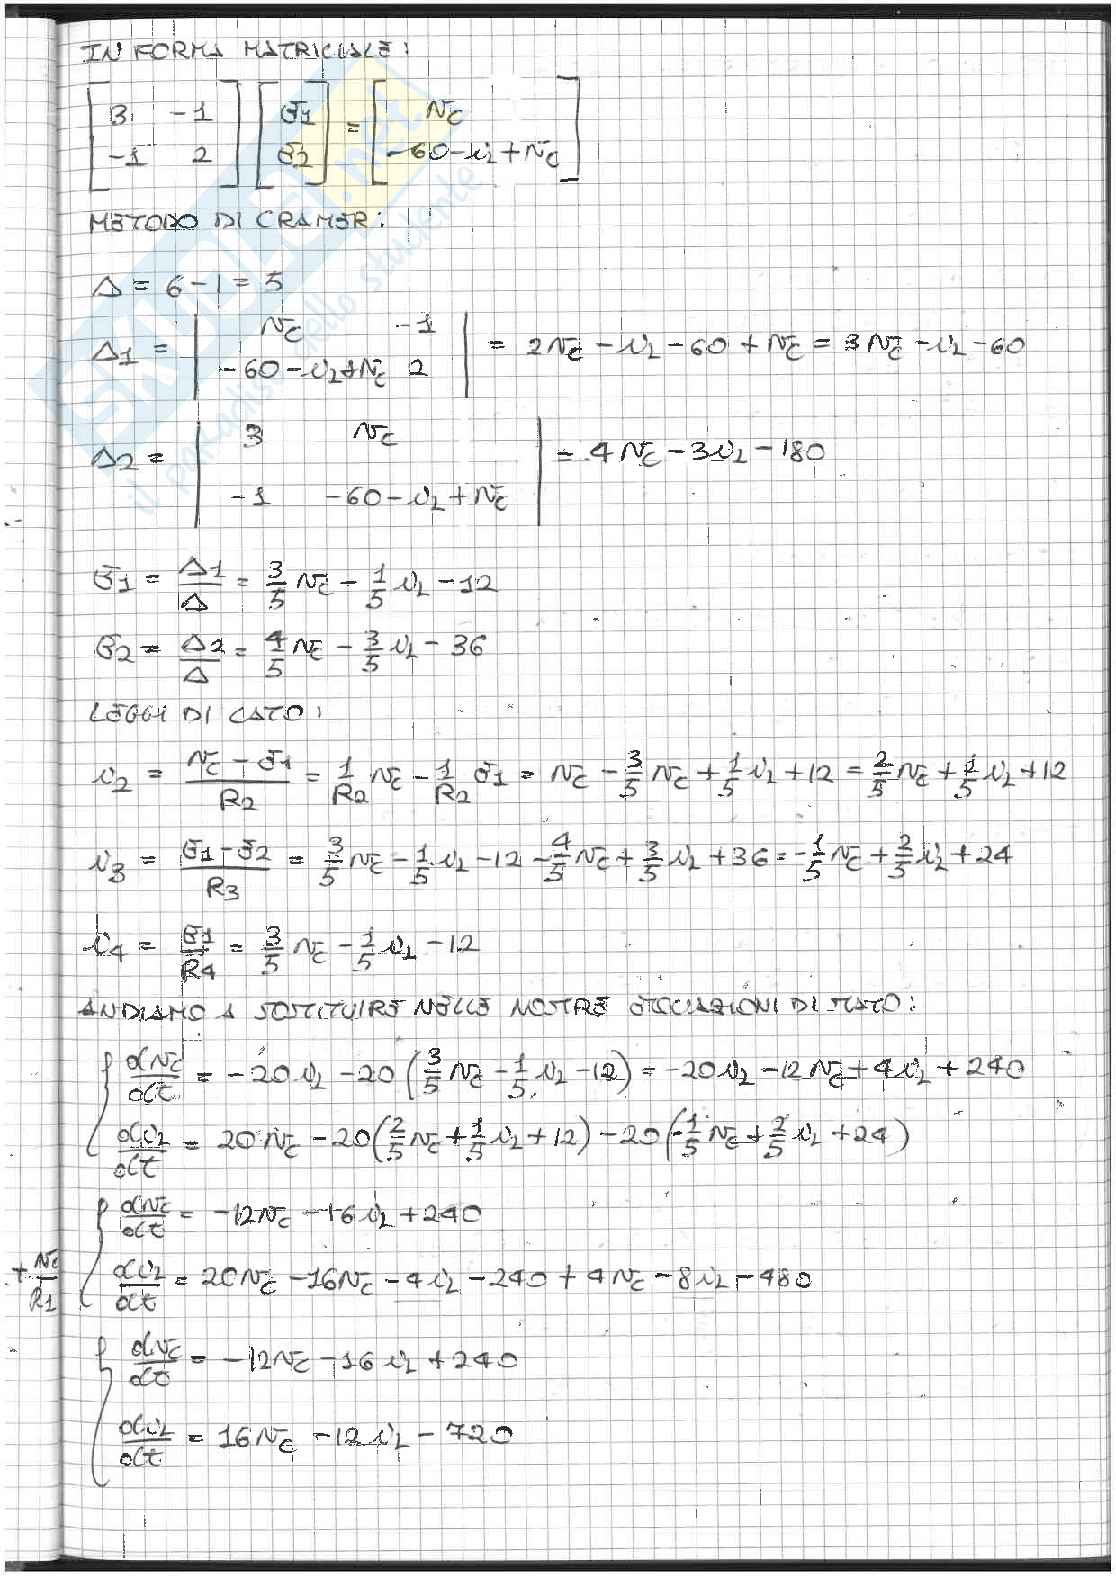 IN FORMA MATRICIALE:
[3 -1; -1 2] [e1; e2] = [vc; -60-iL+vc]
METODO DI CRAMER:
Δ = 6-1 = 5
Δ1 = |vc -1; -60-iL+vc 2| = 2vc - iL - 60 + vc = 3vc - iL - 60
Δ2 = |3 vc; -1 -60-iL+vc| = 4vc - 3iL - 180
e1 = Δ1/Δ = 3/5 vc - 1/5 iL - 12
e2 = Δ2/Δ = 4/5 vc - 3/5 iL - 36
LEGGI DI LATO:
i2 = (vc - e1)/R2 = 1/R2 vc - 1/R2 e1 = vc - 3/5 vc + 1/5 iL + 12 = 2/5 vc + 1/5 iL + 12
i3 = (e1 - e2)/R3 = 3/5 vc - 1/5 iL - 12 - 4/5 vc + 3/5 iL + 36 = -1/5 vc + 2/5 iL + 24
i4 = e1/R4 = 3/5 vc - 1/5 iL - 12
ANDIAMO A SOSTITUIRE NELLE NOSTRE EQUAZIONI DI STATO:
dvc/dt = -20iL - 20(3/5 vc - 1/5 iL - 12) = -20iL - 12vc + 4iL + 240
diL/dt = 20vc - 20(2/5 vc + 1/5 iL + 12) - 20(-1/5 vc + 2/5 iL + 24)
dvc/dt = -12vc - 16iL + 240
+vc/R1 diL/dt = 20vc - 16vc - 4iL - 240 + 4vc - 8iL - 480
dvc/dt = -12vc - 16iL + 240
diL/dt = 16vc - 12iL - 720
SKUOLA.net
il paradiso dello studente